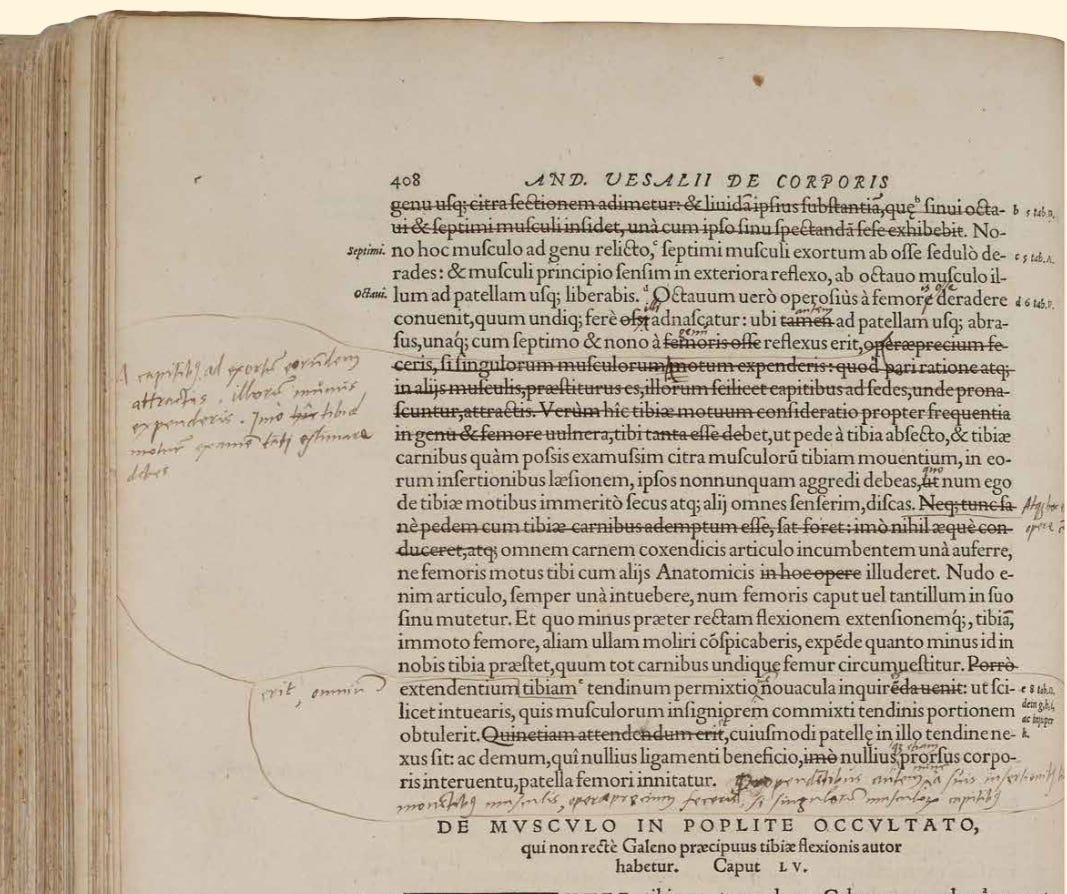 408 AND. VESALII DE CORPORIS
genu usq; citra sectionem adimetur: & liuidā ipsius substantiā, quę sinui octa- b 5 tab.D.
ui & septimi musculi insidet, unà cum ipso sinu spectandā sese exhibebit. No-
Septimi. no hoc musculo ad genu relicto, septimi musculi exortum ab osse sedulò de- c 5 tab.A.
rades: & musculi principio sensim in exteriora reflexo, ab octauo musculo il-
is osse
Octaui. lum ad patellam usq; liberabis. d Octauum uerò operosiùs à femore deradere d 6 tab.
illi autem
conuenit, quum undiq; ferè ossi adnascatur: ubi tamen ad patellam usq; abra-
genu
sus, unaq́; cum septimo & nono à femoris osse reflexus erit, operæprecium fe-
ceris, si singulorum musculorum motum expenderis: quod pari ratione atq;
in alijs musculis, præstiturus es, illorum scilicet capitibus ad sedes, unde prona-
scuntur, attractis. Verùm hîc tibiæ motuum consideratio propter frequentia
in genu & femore uulnera, tibi tanta esse debet, ut pede à tibia absecto, & tibiæ
carnibus quàm possis examussim citra musculorū tibiam mouentium, in eo-
rum insertionibus læsionem, ipsos nonnunquam aggredi debeas, ut num ego
de tibiæ motibus immeritò secus atq; alij omnes senserim, discas. Neq; tunc sa-
nè pedem cum tibiæ carnibus ademptum esse, sat foret: imò nihil æquè con-
duceret, atq; omnem carnem coxendicis articulo incumbentem unà auferre,
ne femoris motus tibi cum alijs Anatomicis in hoc opere illuderet. Nudo e-
nim articulo, semper unà intuebere, num femoris caput uel tantillum in suo
sinu mutetur. Et quo minus præter rectam flexionem extensionemq́;, tibiā,
immoto femore, aliam ullam moliri cōspicaberis, expēde quanto minus id in
nobis tibia præstet, quum tot carnibus undique femur circumuestitur. Porrò
extendentium tibiam e tendinum permixtio nouacula inquirēda uenit: ut sci- e 8 tab.D.
licet intuearis, quis musculorum insigniorem commixti tendinis portionem dein g,h,i,
obtulerit. Quinetiam attendendum erit, cuiusmodi patellę in illo tendine ne- ac insuper
xus sit: ac demum, quî nullius ligamenti beneficio, imò nullius prorsus corpo- k.
ris interuentu, patella femori innitatur.
A capitibꝰ ad exortus eorundem
attractis, illorum munus
expenderis. Imo hîc tibiæ
motuum examē tāti estimare
debes
erit, omnium
autem à suis insertionibꝰ
musculis, operæprecium feceris, si singulorū musculorū capitibꝰ
DE MVSCVLO IN POPLITE OCCVLTATO,
qui non rectè Galeno præcipuus tibiæ flexionis autor
habetur. Caput LV.